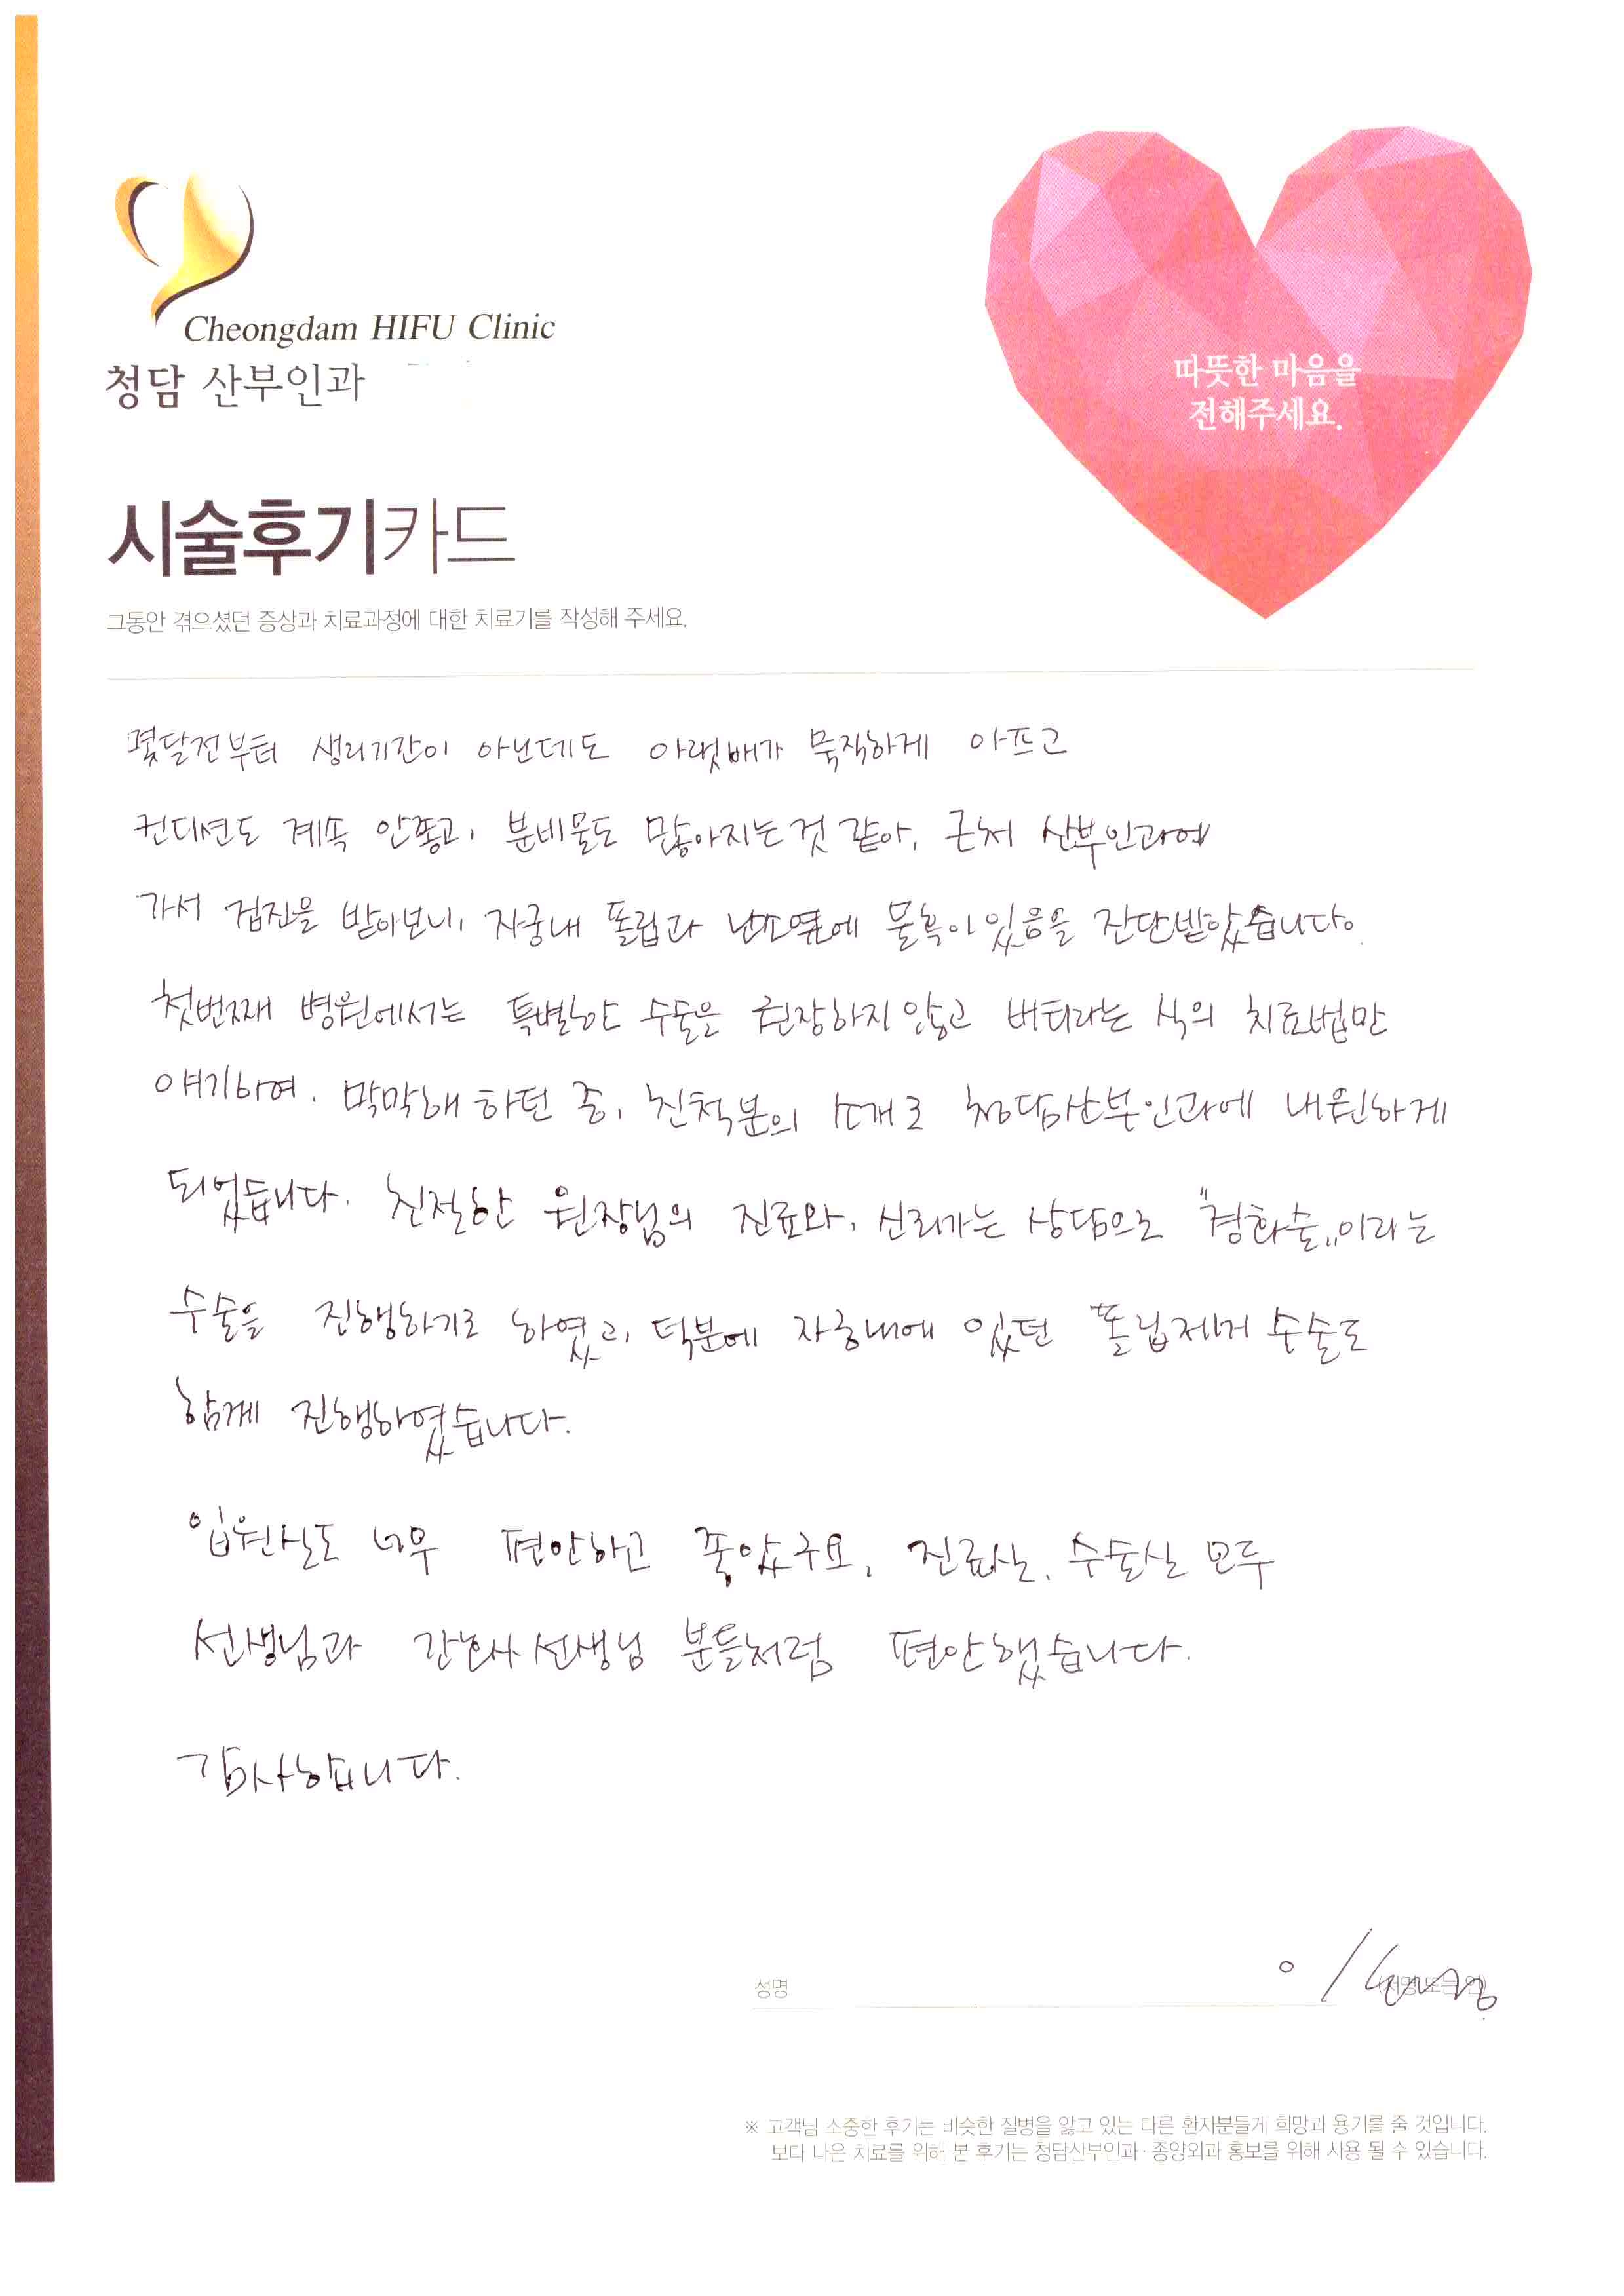 Cheongdam HIFU Clinic
청담 산부인과
따뜻한 마음을
전해주세요.
시술후기카드
그동안 겪으셨던 증상과 치료과정에 대한 치료기를 작성해 주세요.
몇달전부터 생리기간이 아닌데도 아랫배가 묵직하게 아프고
컨디션도 계속 안좋고, 분비물도 많아지는것 같아, 근처 산부인과에
가서 검진을 받아보니, 자궁내 폴립과 난소옆에 물혹이 있음을 진단받았습니다.
첫번째 병원에서는 특별한 수술은 권장하지 않고 버티라는 식의 치료법만
얘기하여. 막막해 하던 중, 친척분의 소개로 청담산부인과에 내원하게
되었습니다. 친절한 원장님의 진료와, 신뢰가는 상담으로 "경화술"이라는
수술을 진행하기로 하였고, 덕분에 자궁내에 있던 폴립제거 수술도
함께 진행하였습니다.
입원실도 너무 편안하고 좋았구요, 진료실, 수술실 모두
선생님과 간호사 선생님 분들처럼 편안했습니다.
감사합니다.
성명
※ 고객님 소중한 후기는 비슷한 질병을 앓고 있는 다른 환자분들게 희망과 용기를 줄 것입니다.
보다 나은 치료를 위해 본 후기는 청담산부인과·종양외과 홍보를 위해 사용 될 수 있습니다.